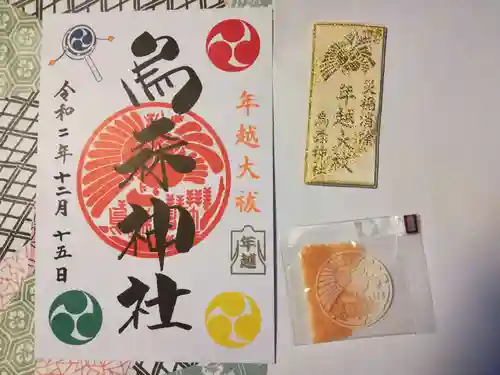 年越大祓
年越
烏森神社
令和二年十二月十五日
災禍消除
年越大祓
烏森神社